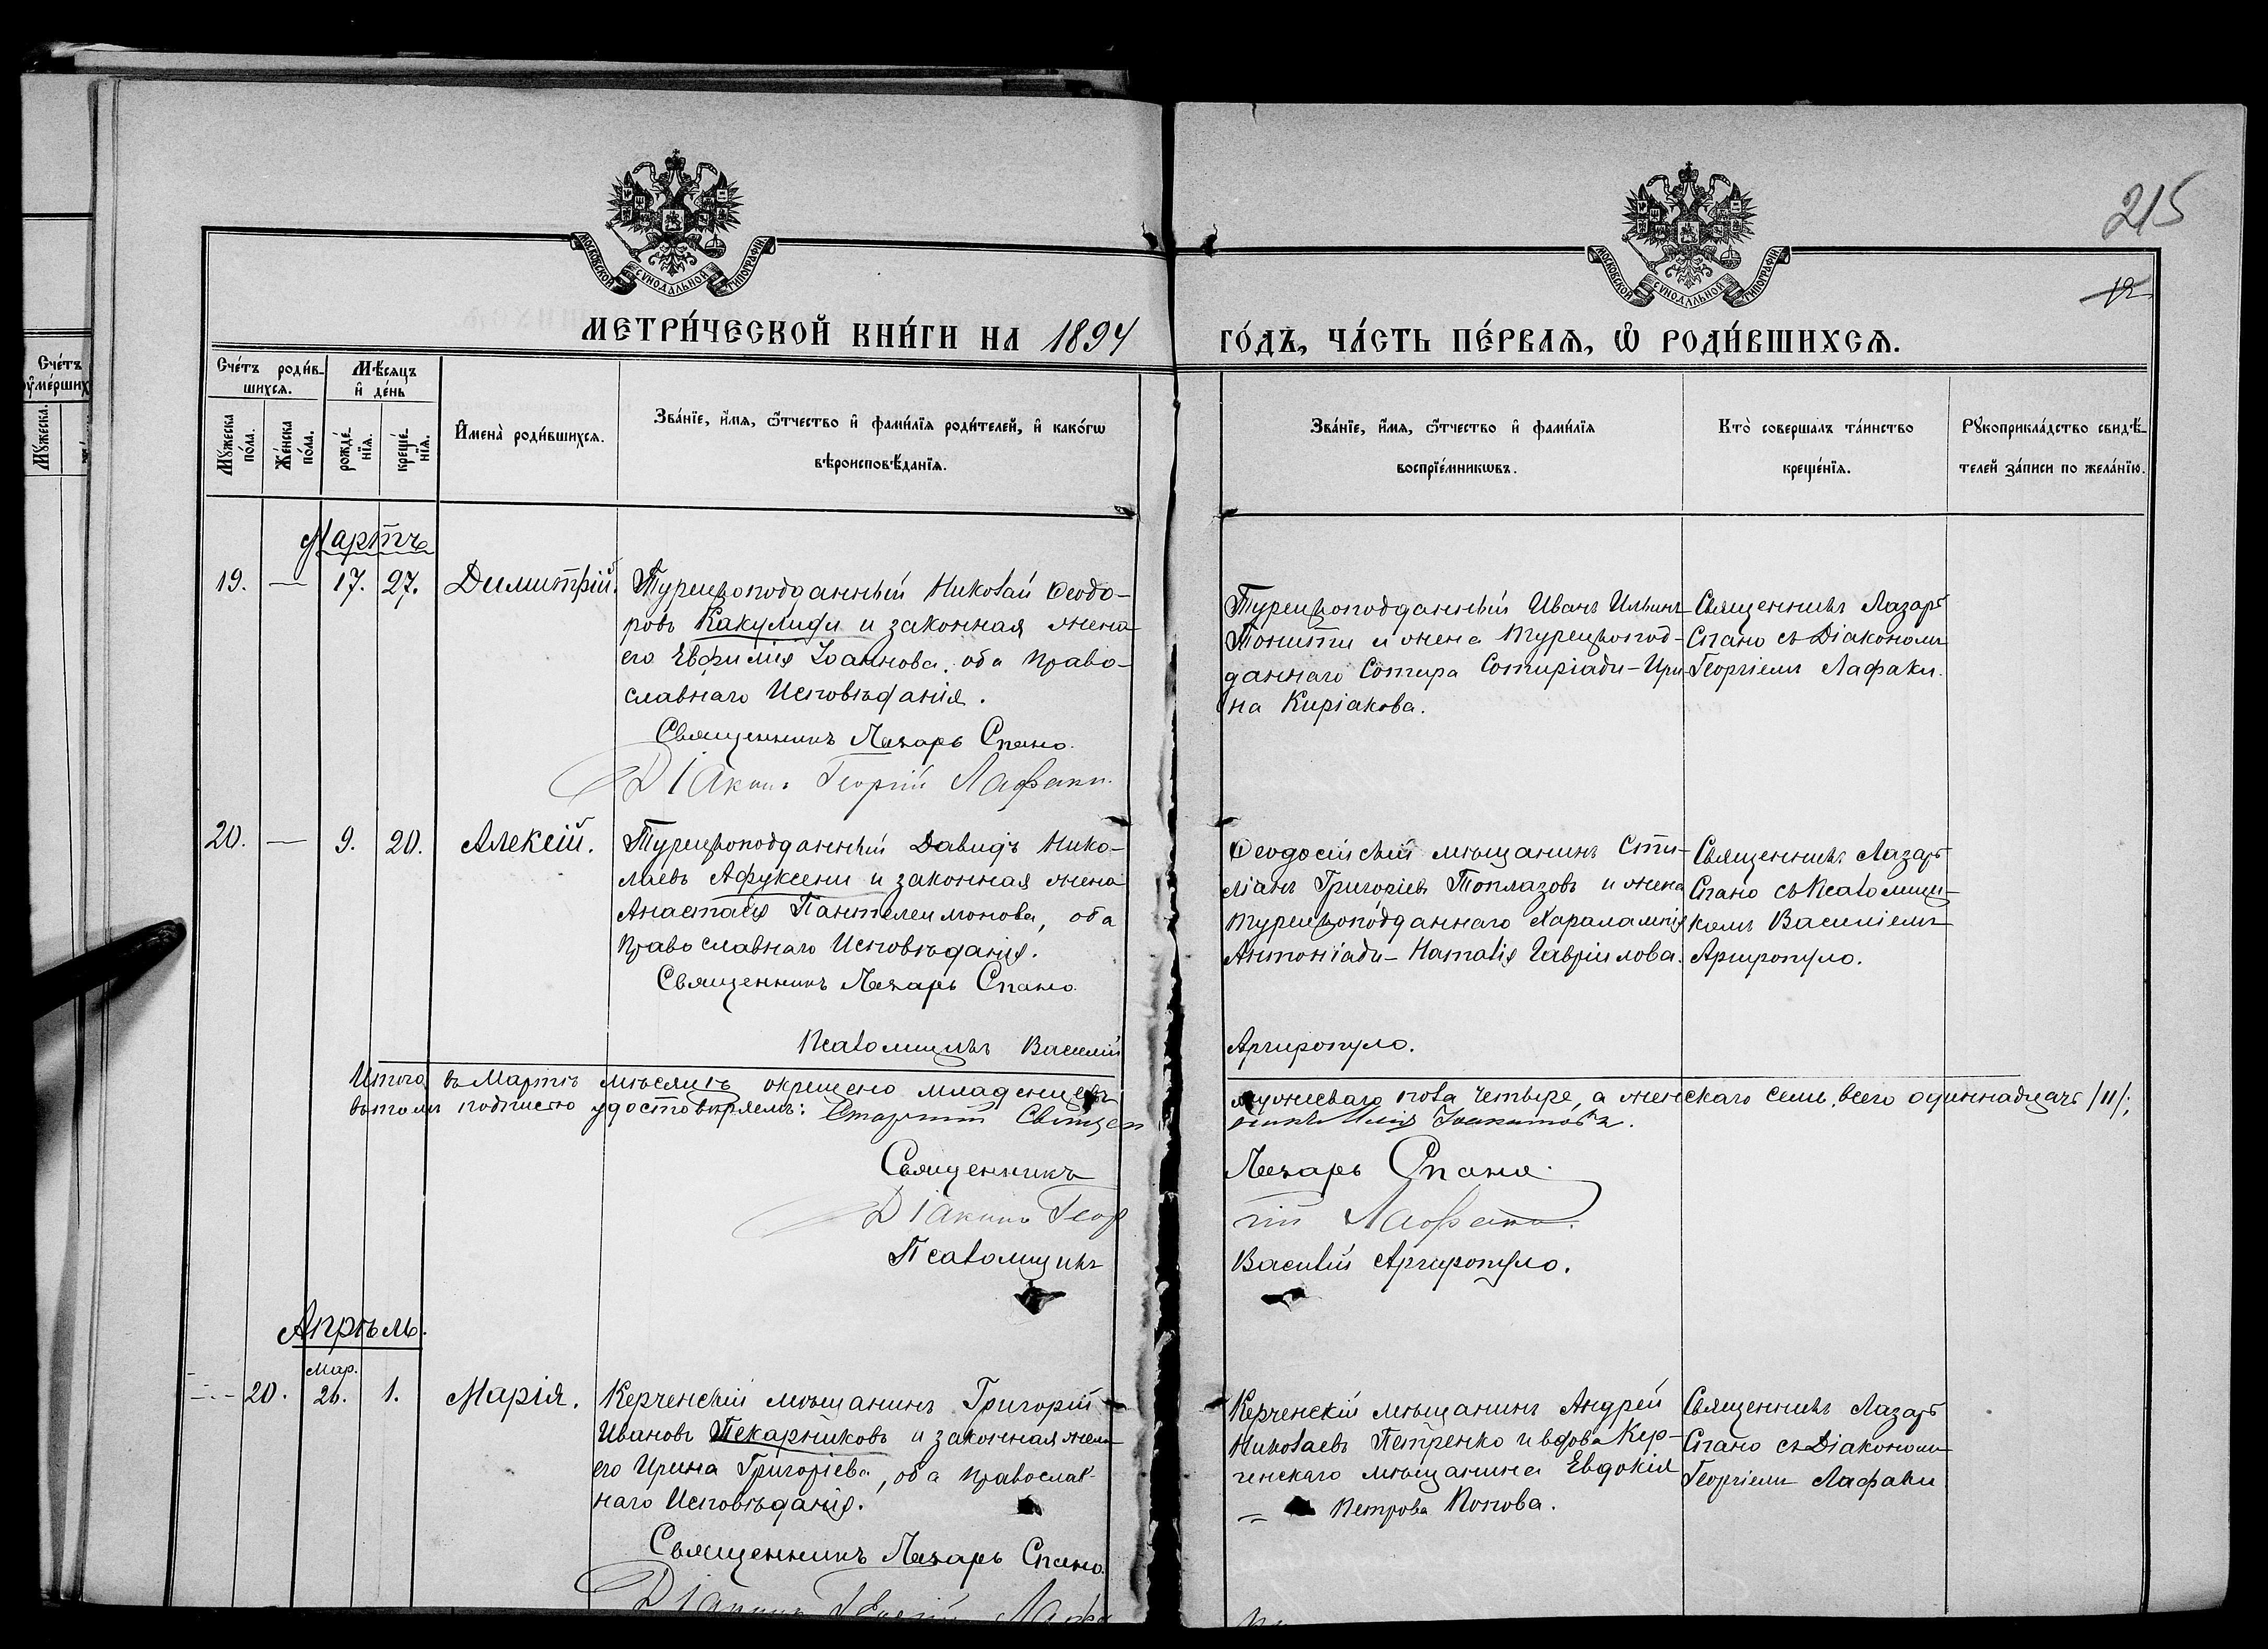 215
12
МОСКОВСКОЙ СѴНОДАЛЬНОЙ ТИПОГРАФІИ
МОСКОВСКОЙ СѴНОДАЛЬНОЙ ТИПОГРАФІИ
МЕТРИ́ЧЕСКОЙ КНИ́ГИ НА 1894
ГО́ДЪ, ЧА́СТЬ ПЕ́РВАѦ, Ѡ҆ РОДИ́ВШИХСѦ.
Сче́тъ
оу҆ме́рших
Мꙋ́жеска.
Сче́тъ роди́в-
шихсѧ.
Мꙋ́жеска по́ла.
Же́нска по́ла.
Мѣ́сѧцъ
и҆ де́нь
рожде́-
нїѧ.
креще́-
нїѧ.
И҆мена̀ роди́вшихсѧ.
Зва́нїе, и҆́мѧ, ѻ҆́тчество и҆ фами́лїѧ роди́телей, и҆ како́гѡ
вѣроисповѣ́данїѧ.
Зва́нїе, и҆́мѧ, ѻ҆́тчество и҆ фами́лїѧ
воспрїе́мникѡвъ.
Кто̀ совершалъ та́инство
креще́нїѧ.
Рꙋкоприкла́дство свидѣ́-
телей за́писи по жела́нїю.
Мартъ
19. — 17. 27. Димитрій.
Турецкоподданный Николай Ѳеодо-
ровъ Какулиди и законная жена
его Евфимія Іоаннова, оба Право-
славнаго Исповѣданія.
Священникъ Лазарь Спано.
Діаконъ Георгій Лафаки.
Турецкоподданный Иванъ Ильинъ
и жена турецкопод-
даннаго Сотира Сотиріади - Ири-
на Киріакова.
Священникъ Лазарь
Спано съ Діакономъ
Георгіемъ Лафаки.
20. — 9. 20. Алексій.
Турецкоподданный Давидъ Нико-
лаевъ Афуксени и законная жена
Анастасія Пантелеимонова, оба
Православнаго Исповѣданія.
Священникъ Лазарь Спано.
Псаломщикъ Василій
Аргиропуло.
Ѳеодосійскій мѣщанинъ Сти-
ліанъ Григоріевъ Топлазовъ и жена
турецкоподданнаго Харалампія
Антоніади - Наталія Гавріилова.
Священникъ Лазарь
Спано съ Псаломщи-
комъ Василіемъ
Аргиропуло.
Итого въ Мартѣ мѣсяцѣ окрещено младенцевъ
мужескаго пола четыре, а женскаго семь, всего одиннадцать /11/;
въ томъ подписью удостовѣряемъ: Старшій Священ
никъ Илія
Священникъ
Лазарь Спано.
Діаконъ Геор
гій Лафаки.
Псаломщикъ
Василій Аргиропуло.
Апрѣль.
Мар.
— 20. 26. 1. Марія.
Керченскій мѣщанинъ Григорій
Ивановъ Пекарниковъ и законная жена
его Ирина Григоріева, оба православ-
наго Исповѣданія.
Священникъ Лазарь Спано.
Діаконъ Георгій Лафа
Керченскій мѣщанинъ Андрей
Николаевъ Петренко и вдова Кер-
ченскаго мѣщанина Евдокія
Петрова Попова.
Священникъ Лазарь
Спано съ Діакономъ
Георгіемъ Лафаки